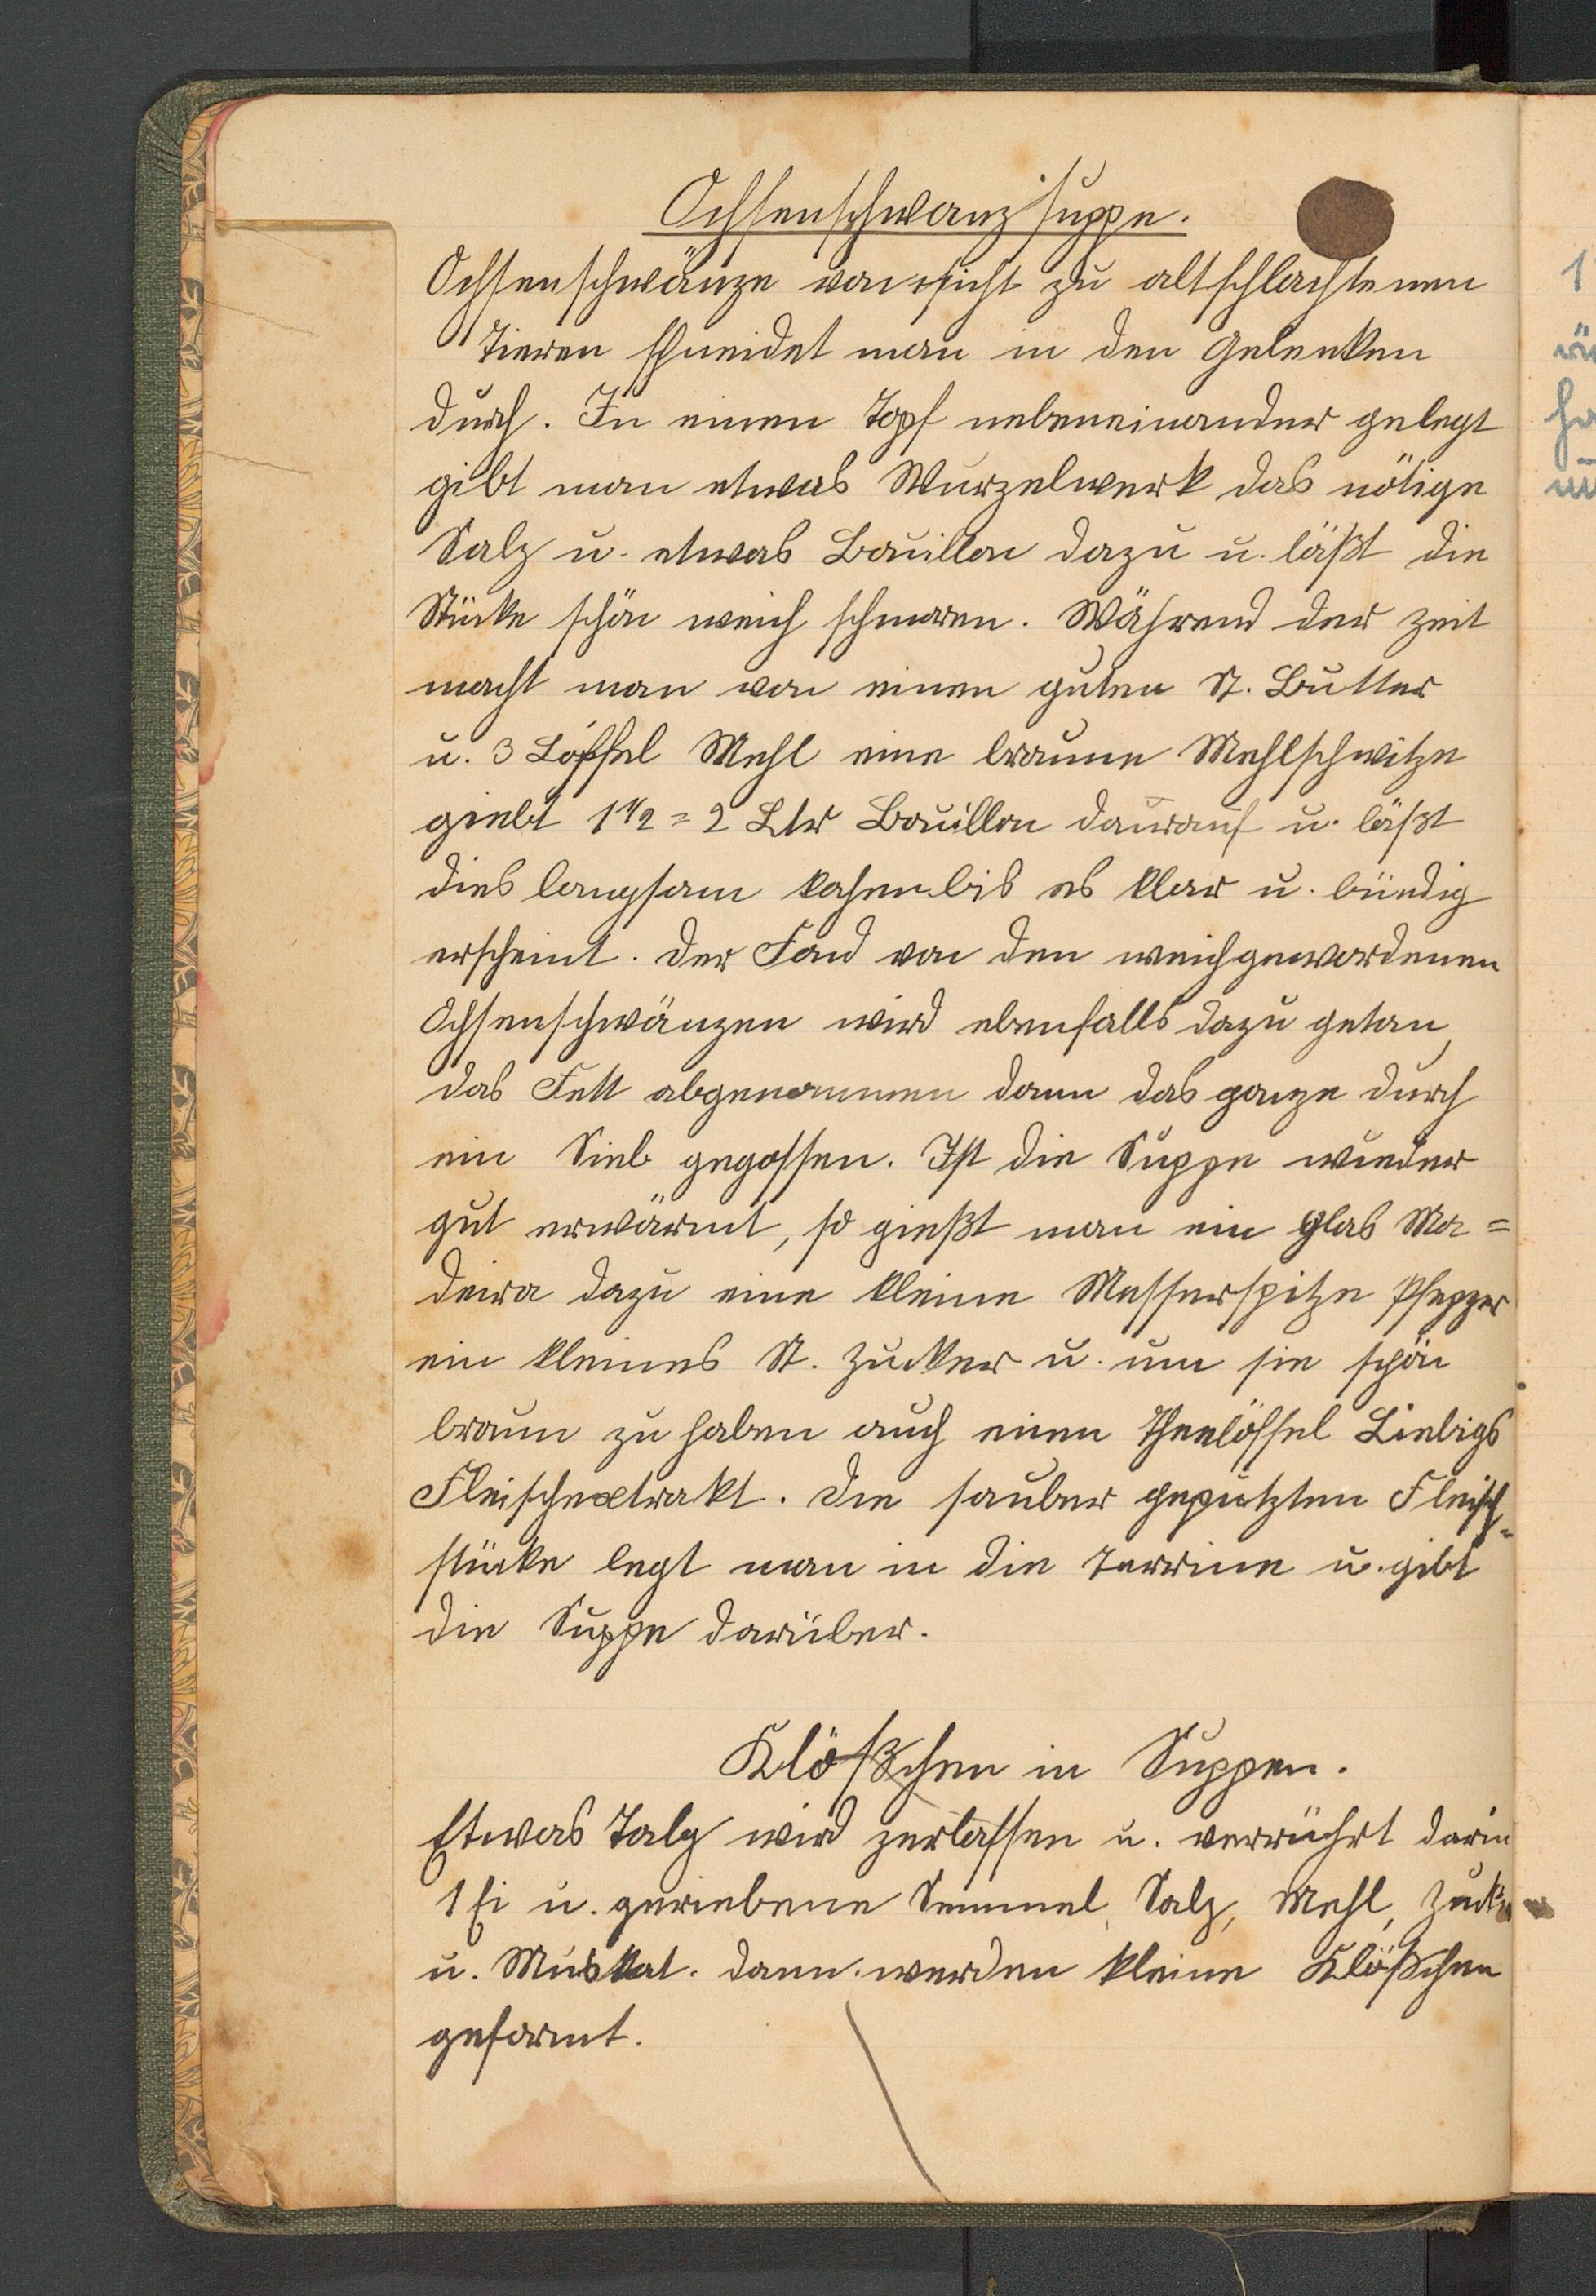 Ochsenschwanzsuppe.
Ochsenschwänze von nicht zu altschlachtenen
Tieren schneidet man in den Gelenken
durch. In einen Topf nebeneinander gelegt
gibt man etwas Wurzelwerk das nötige
Salz u. etwas Bouillon dazu u. läßt die
Stücke schön weich schmoren. Während der Zeit
macht man von einen guten St. Butter
u. 3 Löffel Mehl eine braune Mehlschwitze
giebt 1 1/2 = 2 Ltr Bouillon daurauf u. läßt
dies langsam kochen bis es klar u. bündig
erscheint. Der Fond von den weichgewordenen
Ochsenschwänzen wird ebenfalls dazu getan,
das Fett abgenommen dann das ganze durch
ein Sieb gegossen. Ist die Suppe wieder
gut erwärmt, so gießt man ein Glas Ma=
deira dazu eine kleine Messerspitze Pfeffer
ein kleines St. Zucker u. um sie schön
braun zu haben auch einen Theelöffel Liebigs
Fleischextrakt. Die sauber geputzten Fleisch-
stücke legt man in die Terrine u. gibt
die Suppe darüber.
Klößchen in Suppen.
Etwas Talg wird zerlassen u. verrührt darin
1 Ei u. geriebene Semmel, Salz, Mehl, Zucker
u. Muskat. dann werden kleine Klößchen
geformt.
1
ha